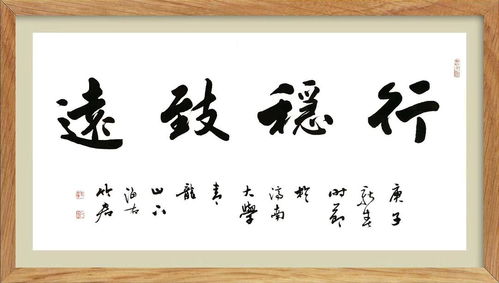 行穩致遠
庚子
時節
於
濟南
大學
青
龍
山下
海右